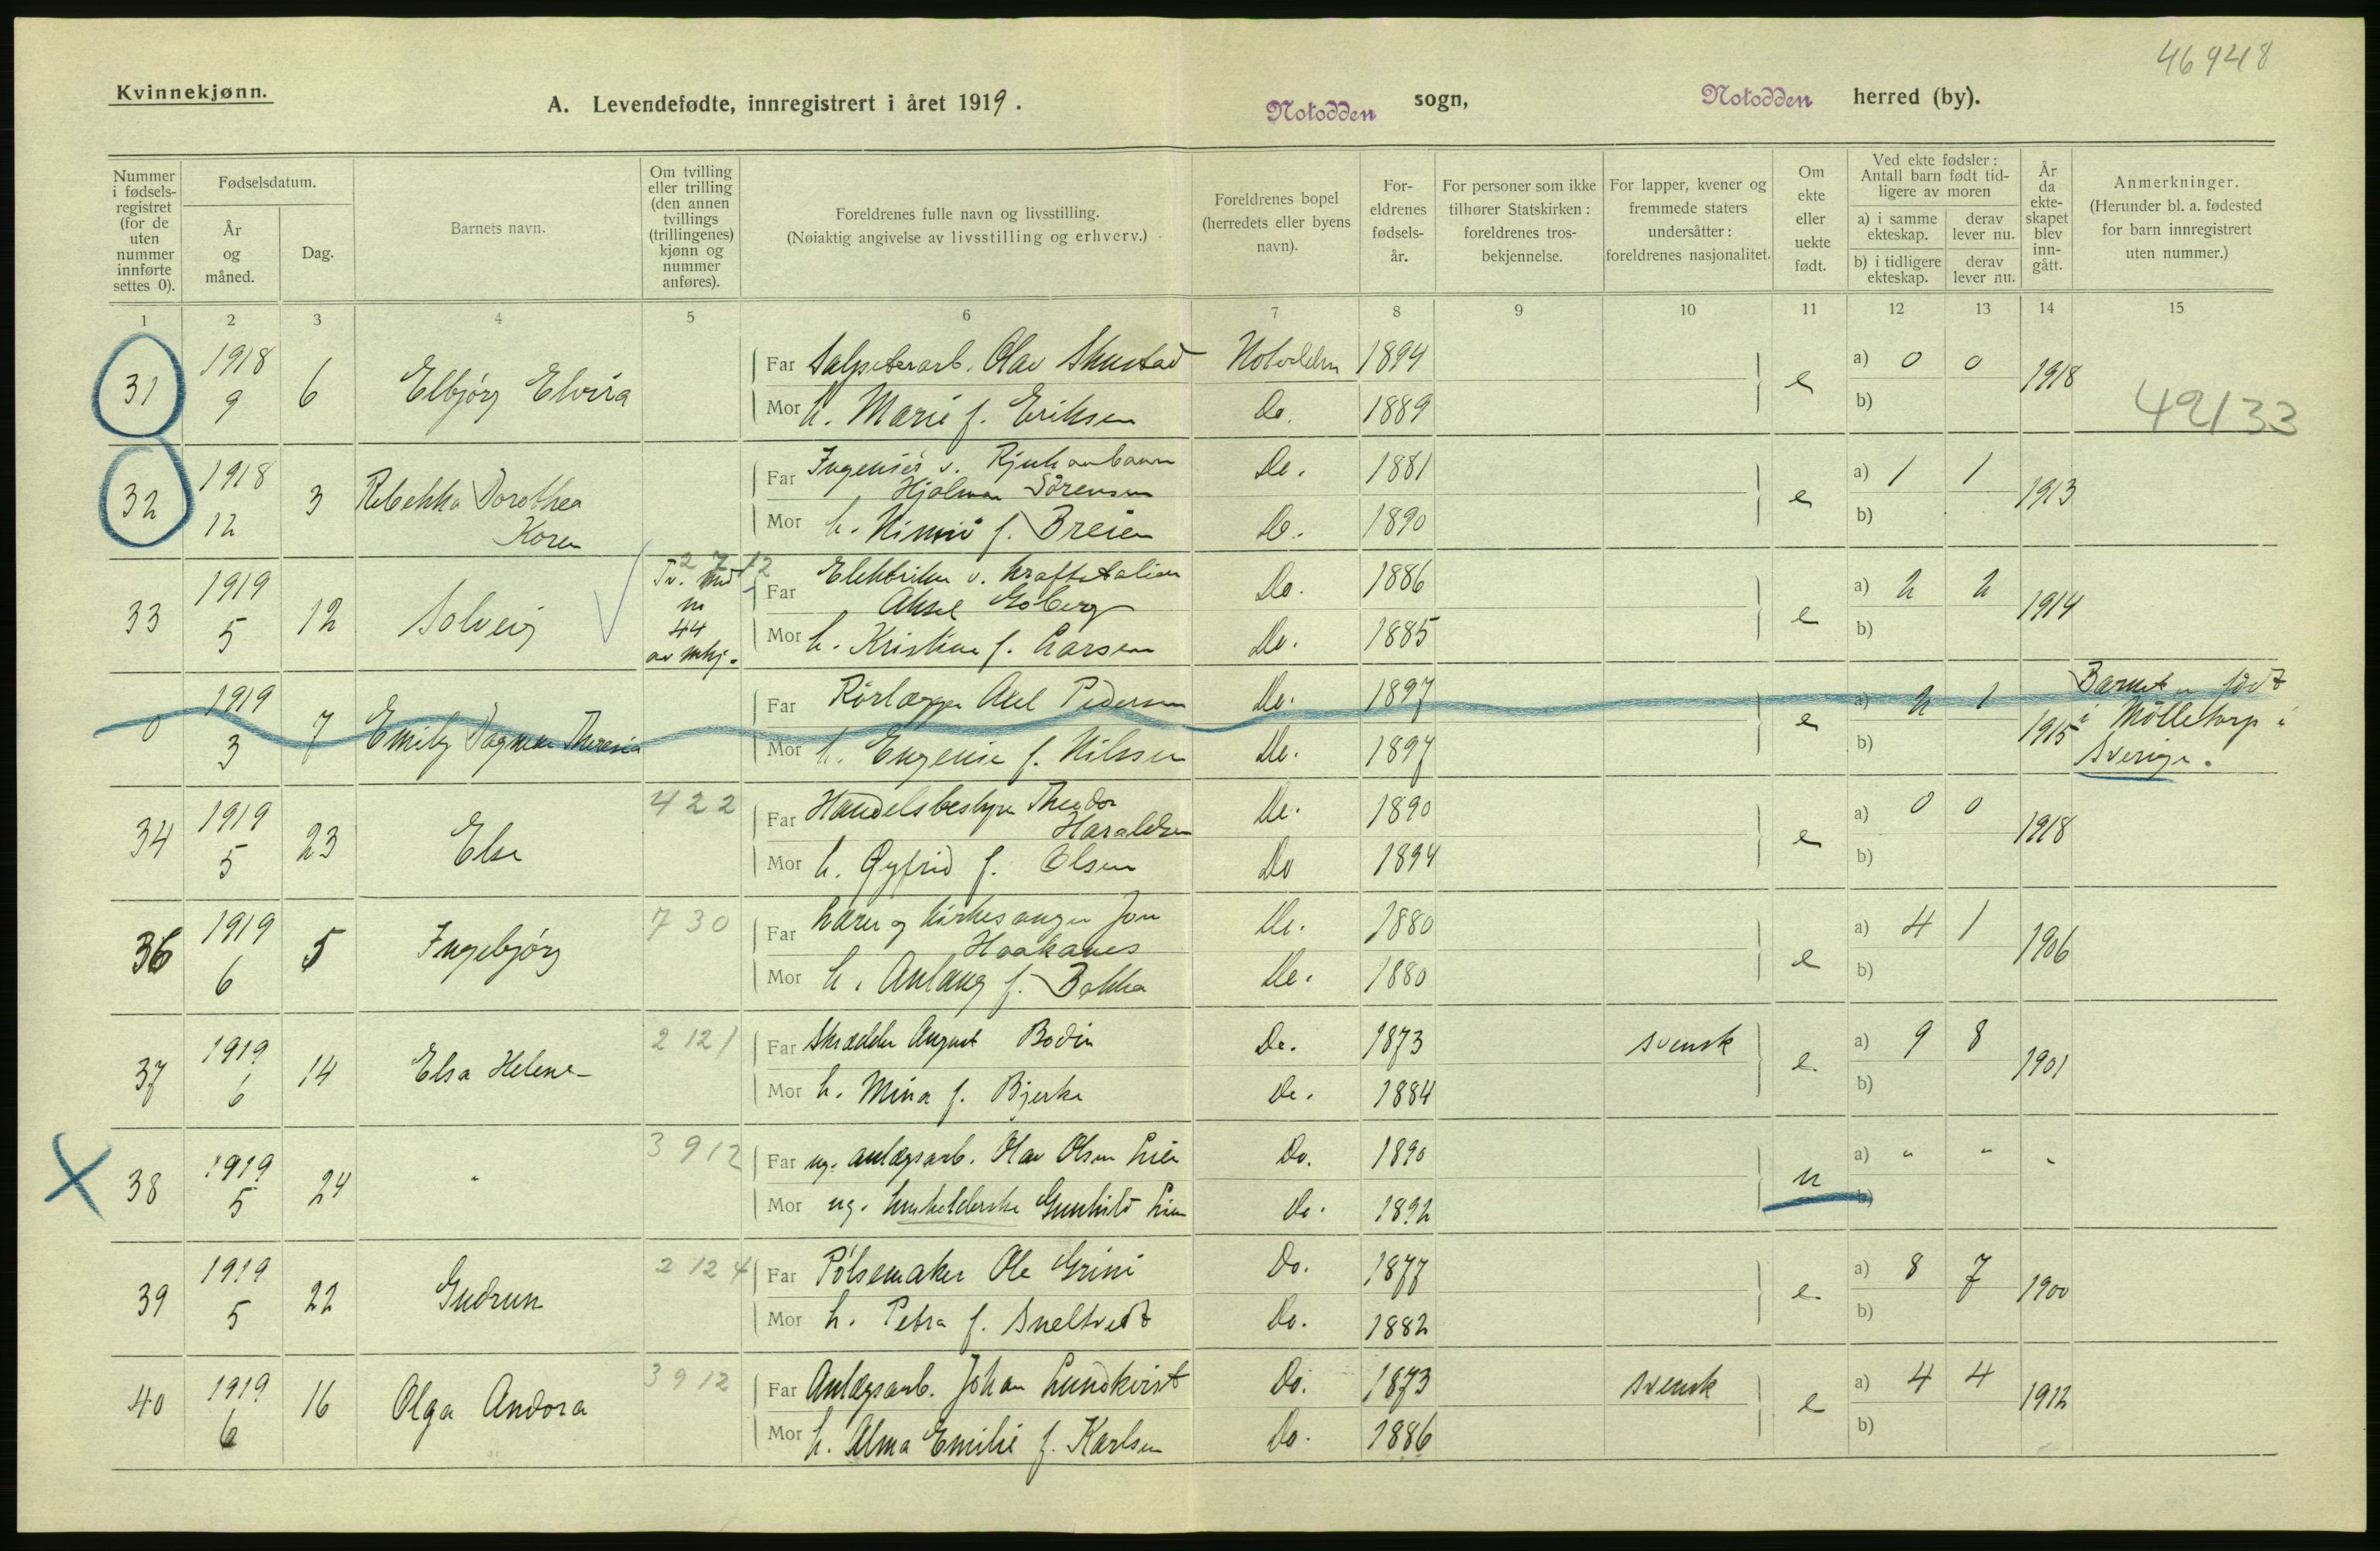 46948
Kvinnekjønn.
A. Levendefødte, innregistrert i året 1919.
Notodden sogn,
Notodden herred (by).
Nummer i fødsels-registret (for de uten nummer innførte settes 0).
Fødselsdatum.
År og måned.
Dag.
Barnets navn.
Om tvilling eller trilling (den annen tvillings (trillingenes) kjønn og nummer anføres).
Foreldrenes fulle navn og livsstilling.
(Nøiaktig angivelse av livsstilling og erhverv.)
Foreldrenes bopel (herredets eller byens navn).
For-eldrenes fødsels-år.
For personer som ikke tilhører Statskirken: foreldrenes tros-bekjennelse.
For lapper, kvener og fremmede staters undersåtter: foreldrenes nasjonalitet.
Om ekte eller uekte født.
Ved ekte fødsler: Antall barn født tid-ligere av moren
a) i samme ekteskap. derav lever nu.
b) i tidligere ekteskap. derav lever nu.
År da ekte-skapet blev inn-gått.
Anmerkninger.
(Herunder bl. a. fødested for barn innregistrert uten nummer.)
1 2 3 4 5 6 7 8 9 10 11 12 13 14 15
31 1918 9 6 Elbjørg Elvira Far Salpeterarb. Olav Skustad Notodden 1894 e a) 0 0 1918
Mor h. Marie f. Eriksen Do. 1889 b) 49133
32 1918 12 3 Rebekka Dorothea Koren Far Ingeniør v. Rjukanbanen Hjalmar Sørensen Do. 1881 e a) 1 1 1913
Mor h. Mimi f. Breien Do. 1890 b)
33 1919 5 12 Solveig Tv. med nr 44 av mkj. 2 7 12 Far Elektriker v. kraftstation Aksel Goberg Do. 1886 e a) 2 2 1914
Mor h. Kristine f. Larsen Do. 1885 b)
0 1919 3 7 Emily Dagmar Theresia Far Rørlægger Axel Pedersen Do. 1897 e a) 2 1 1915 Barnet er født
i Mölletorp i
Sverige.
Mor h. Eugenie f. Nilssen Do. 1897 b)
34 1919 5 23 Else 4 2 2 Far Handelsbestyrer Theodor Haraldsen Do. 1890 e a) 0 0 1918
Mor h. Gyfrid f. Olsen Do 1894 b)
36 1919 6 5 Ingebjørg 7 30 Far Lærer og kirkesanger Jon Haakanes Do. 1880 e a) 4 1 1906
Mor h. Anlaug f. Bakka Do. 1880 b)
37 1919 6 14 Elsa Helene 2 12 1 Far Skrædder August Bodin Do. 1873 svensk e. a) 9 8 1901
Mor h. Mina f. Bjerke Do. 1884 b)
38 1919 5 24 " 3 9 12 Far ug. anlægsarb. Olav Olsen Lien Do. 1890 u a) " " "
Mor ug. husholderske Gunhild Lien Do. 1892 b)
39 1919 5 22 Gudrun 2 12 4 Far Pølsemaker Ole Grini Do. 1877 e. a) 8 7 1900
Mor h. Petra f. Sneltvedt Do. 1882 b)
40 1919 6 16 Olga Andora 3 9 12 Far Anlægsarb. Johan Lundkvist Do. 1873 svensk e a) 4 4 1912
Mor h. Alma Emilie f. Karlsen Do. 1886 b)